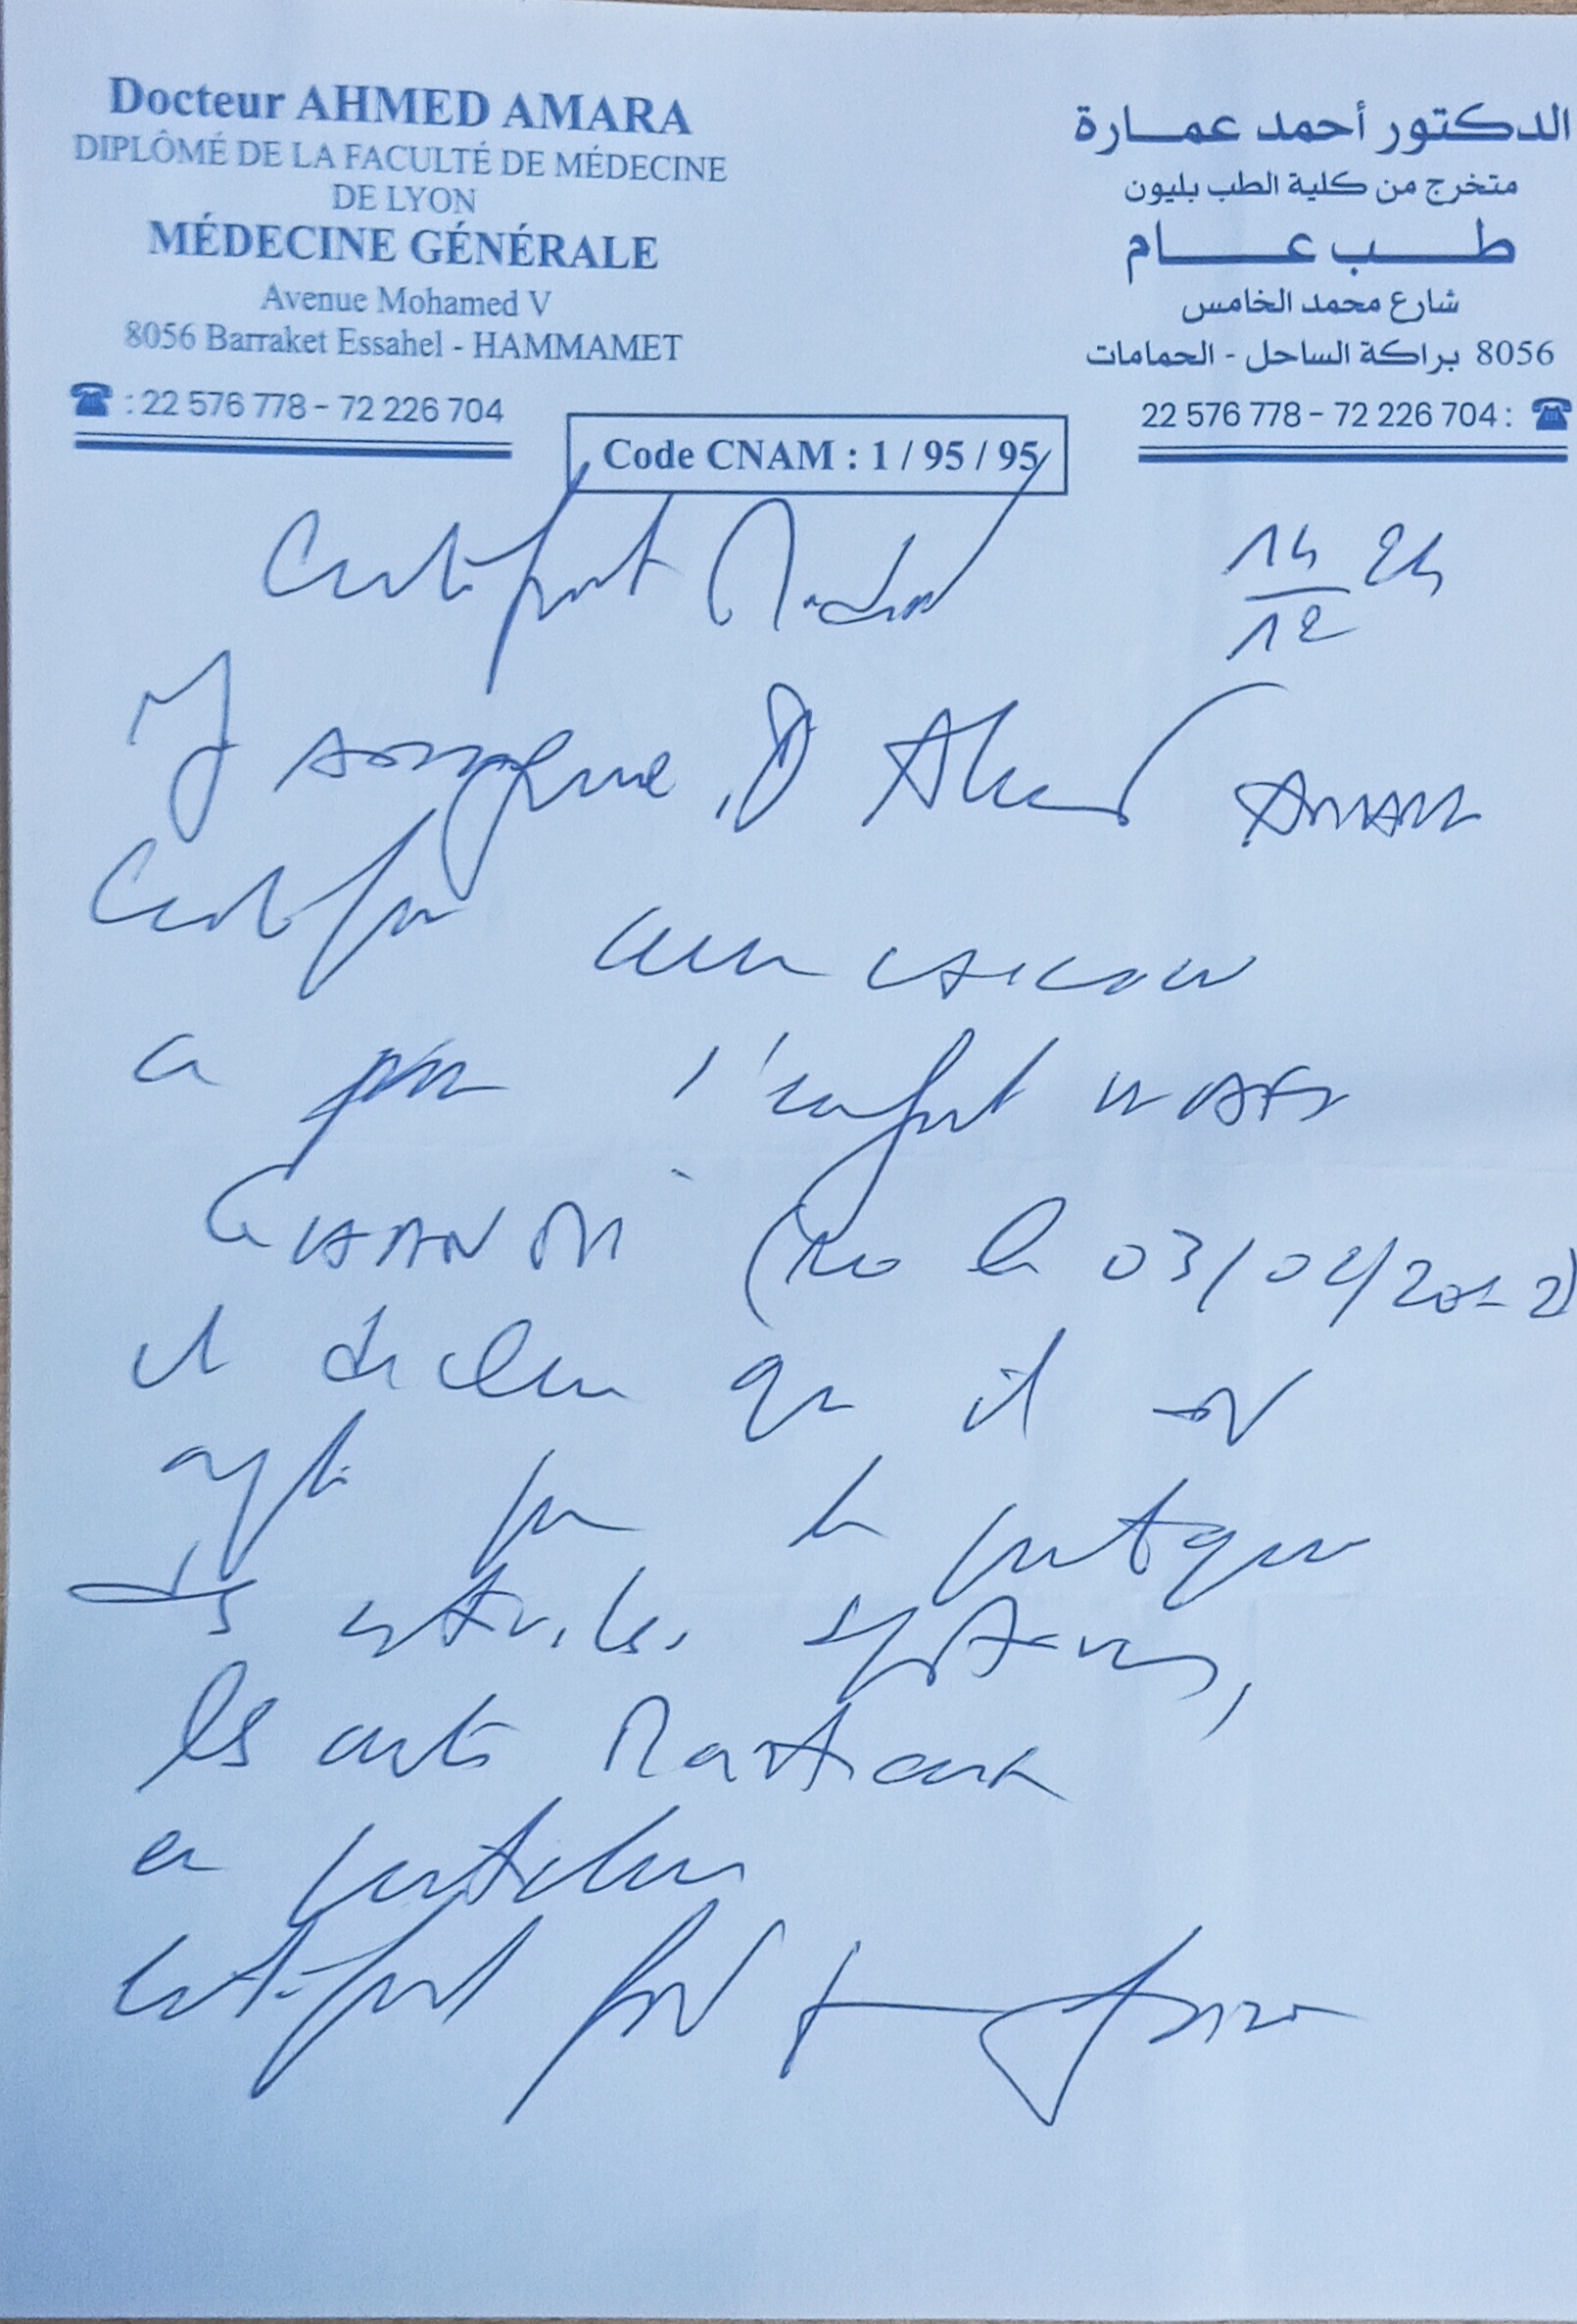 Docteur AHMED AMARA
DIPLÔMÉ DE LA FACULTÉ DE MÉDECINE
DE LYON
MÉDECINE GÉNÉRALE
Avenue Mohamed V
8056 Barraket Essahel - HAMMAMET
☎ : 22 576 778 - 72 226 704
الدكتور أحمد عمارة
متخرج من كلية الطب بليون
طب عام
شارع محمد الخامس
8056 براكة الساحل - الحمامات
22 576 778 - 72 226 704 : ☎
Code CNAM : 1 / 95 / 95
Certificat Médical
14/12 24
Je soussigné, Dr Ahmed AMARA
Certifie avoir examiné
ce jour l'enfant
(né le 03/02/2012)
et déclare que il est
apte pour la pratique
des activités sportives,
les arts martiaux
en particulier
certificat fait